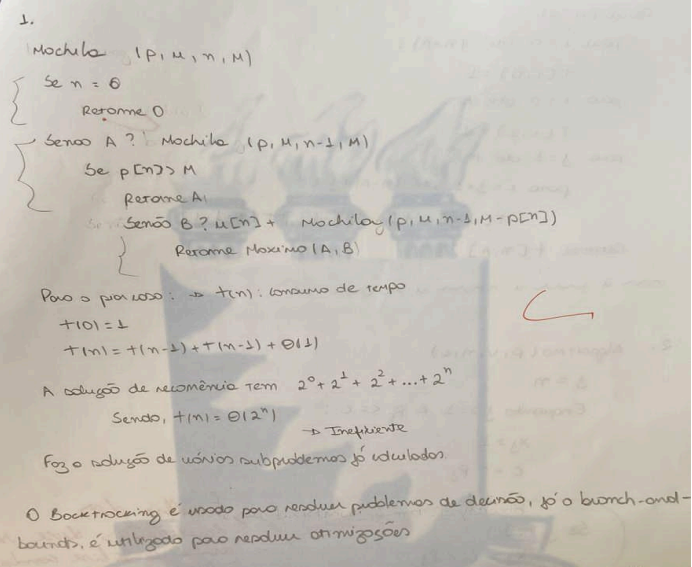 1.
Mochila (p, u, n, M)
Se n = 0
Retorne 0
Senao A ? Mochila (p, u, n-1, M)
Se p[n] > M
Retorne A
Senão B ? u[n] + Mochila (p, u, n-1, M-p[n])
Retorne Maximo (A, B)
Para o pior caso: → t(n): consumo de tempo
t(0) = 1
t(n) = t(n-1) + t(n-1) + Θ(1)
A solução de recorrência tem 2^0 + 2^1 + 2^2 + ... + 2^n
Sendo, t(n) = Θ(2^n)
→ Ineficiente
Faz a solução de vários subproblemas já calculados.
O Backtracking é usado para resolver problemas de decisão, já o branch-and-
bounds, é utilizado para resolver otimizações